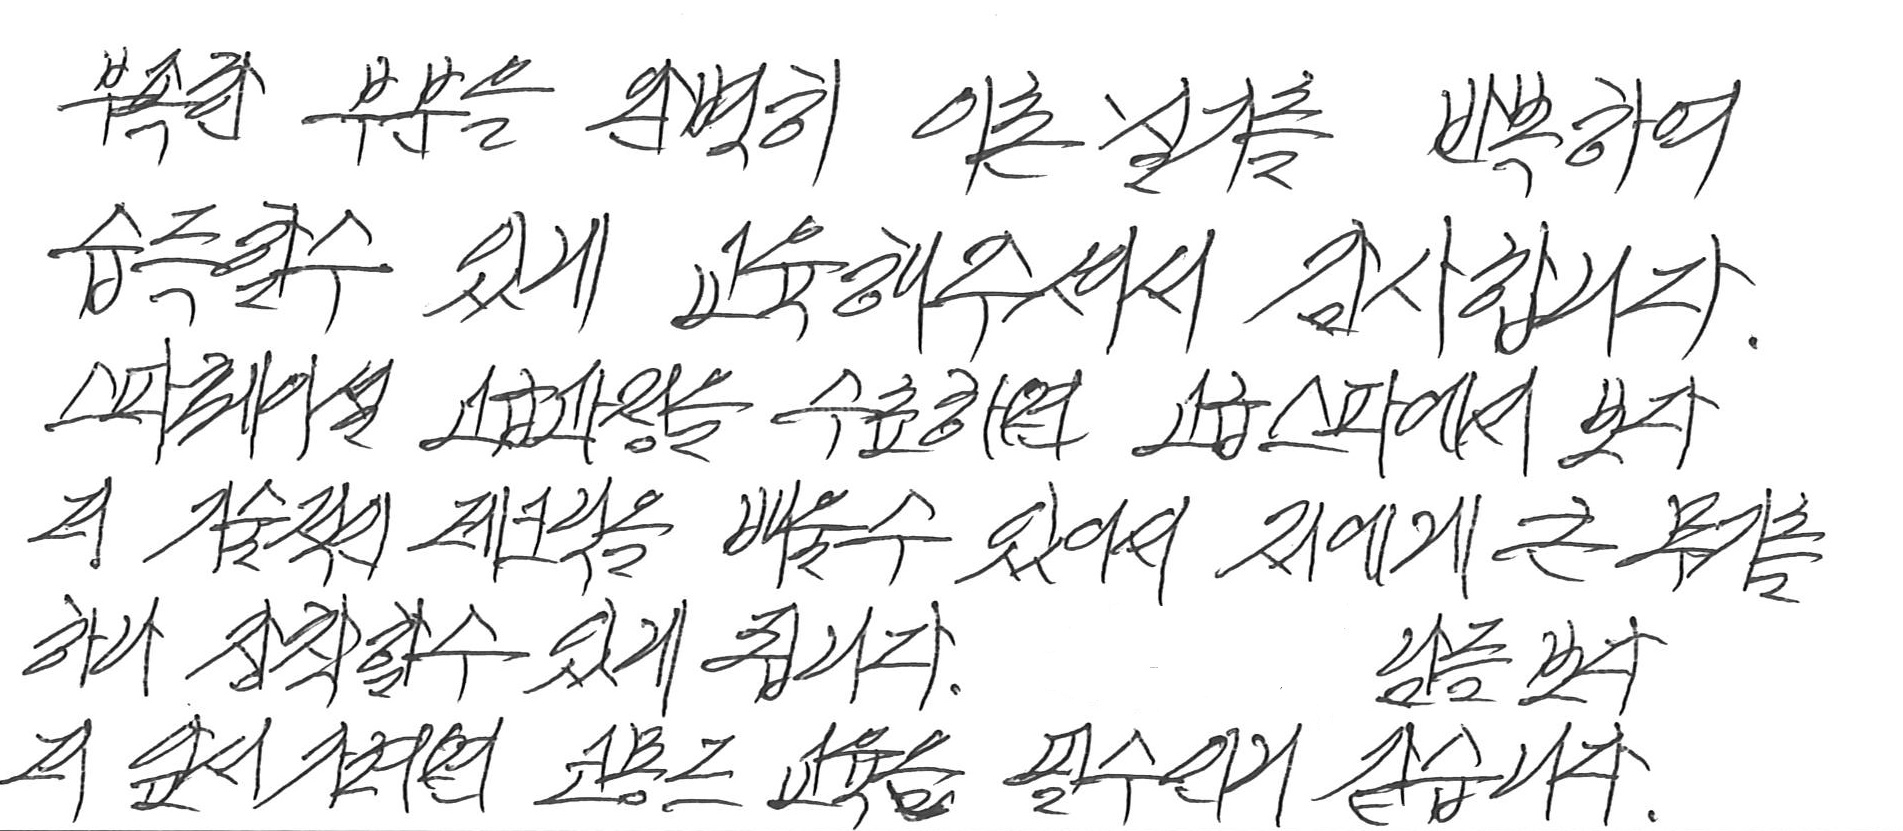 부족한 부분을 완벽히 이론 실기를 반복하여
습득할수 있게 교육해주셔서 감사합니다.
스파테라피 고급과정을 수료하면 고급스파에서 보다
더 기술적인 테크닉을 배울수 있어서 저에게 큰 무기를
하나 장착할수 있게 됩니다. 남들보다
더 앞서가려면 고급 교육은 필수인거 같습니다.